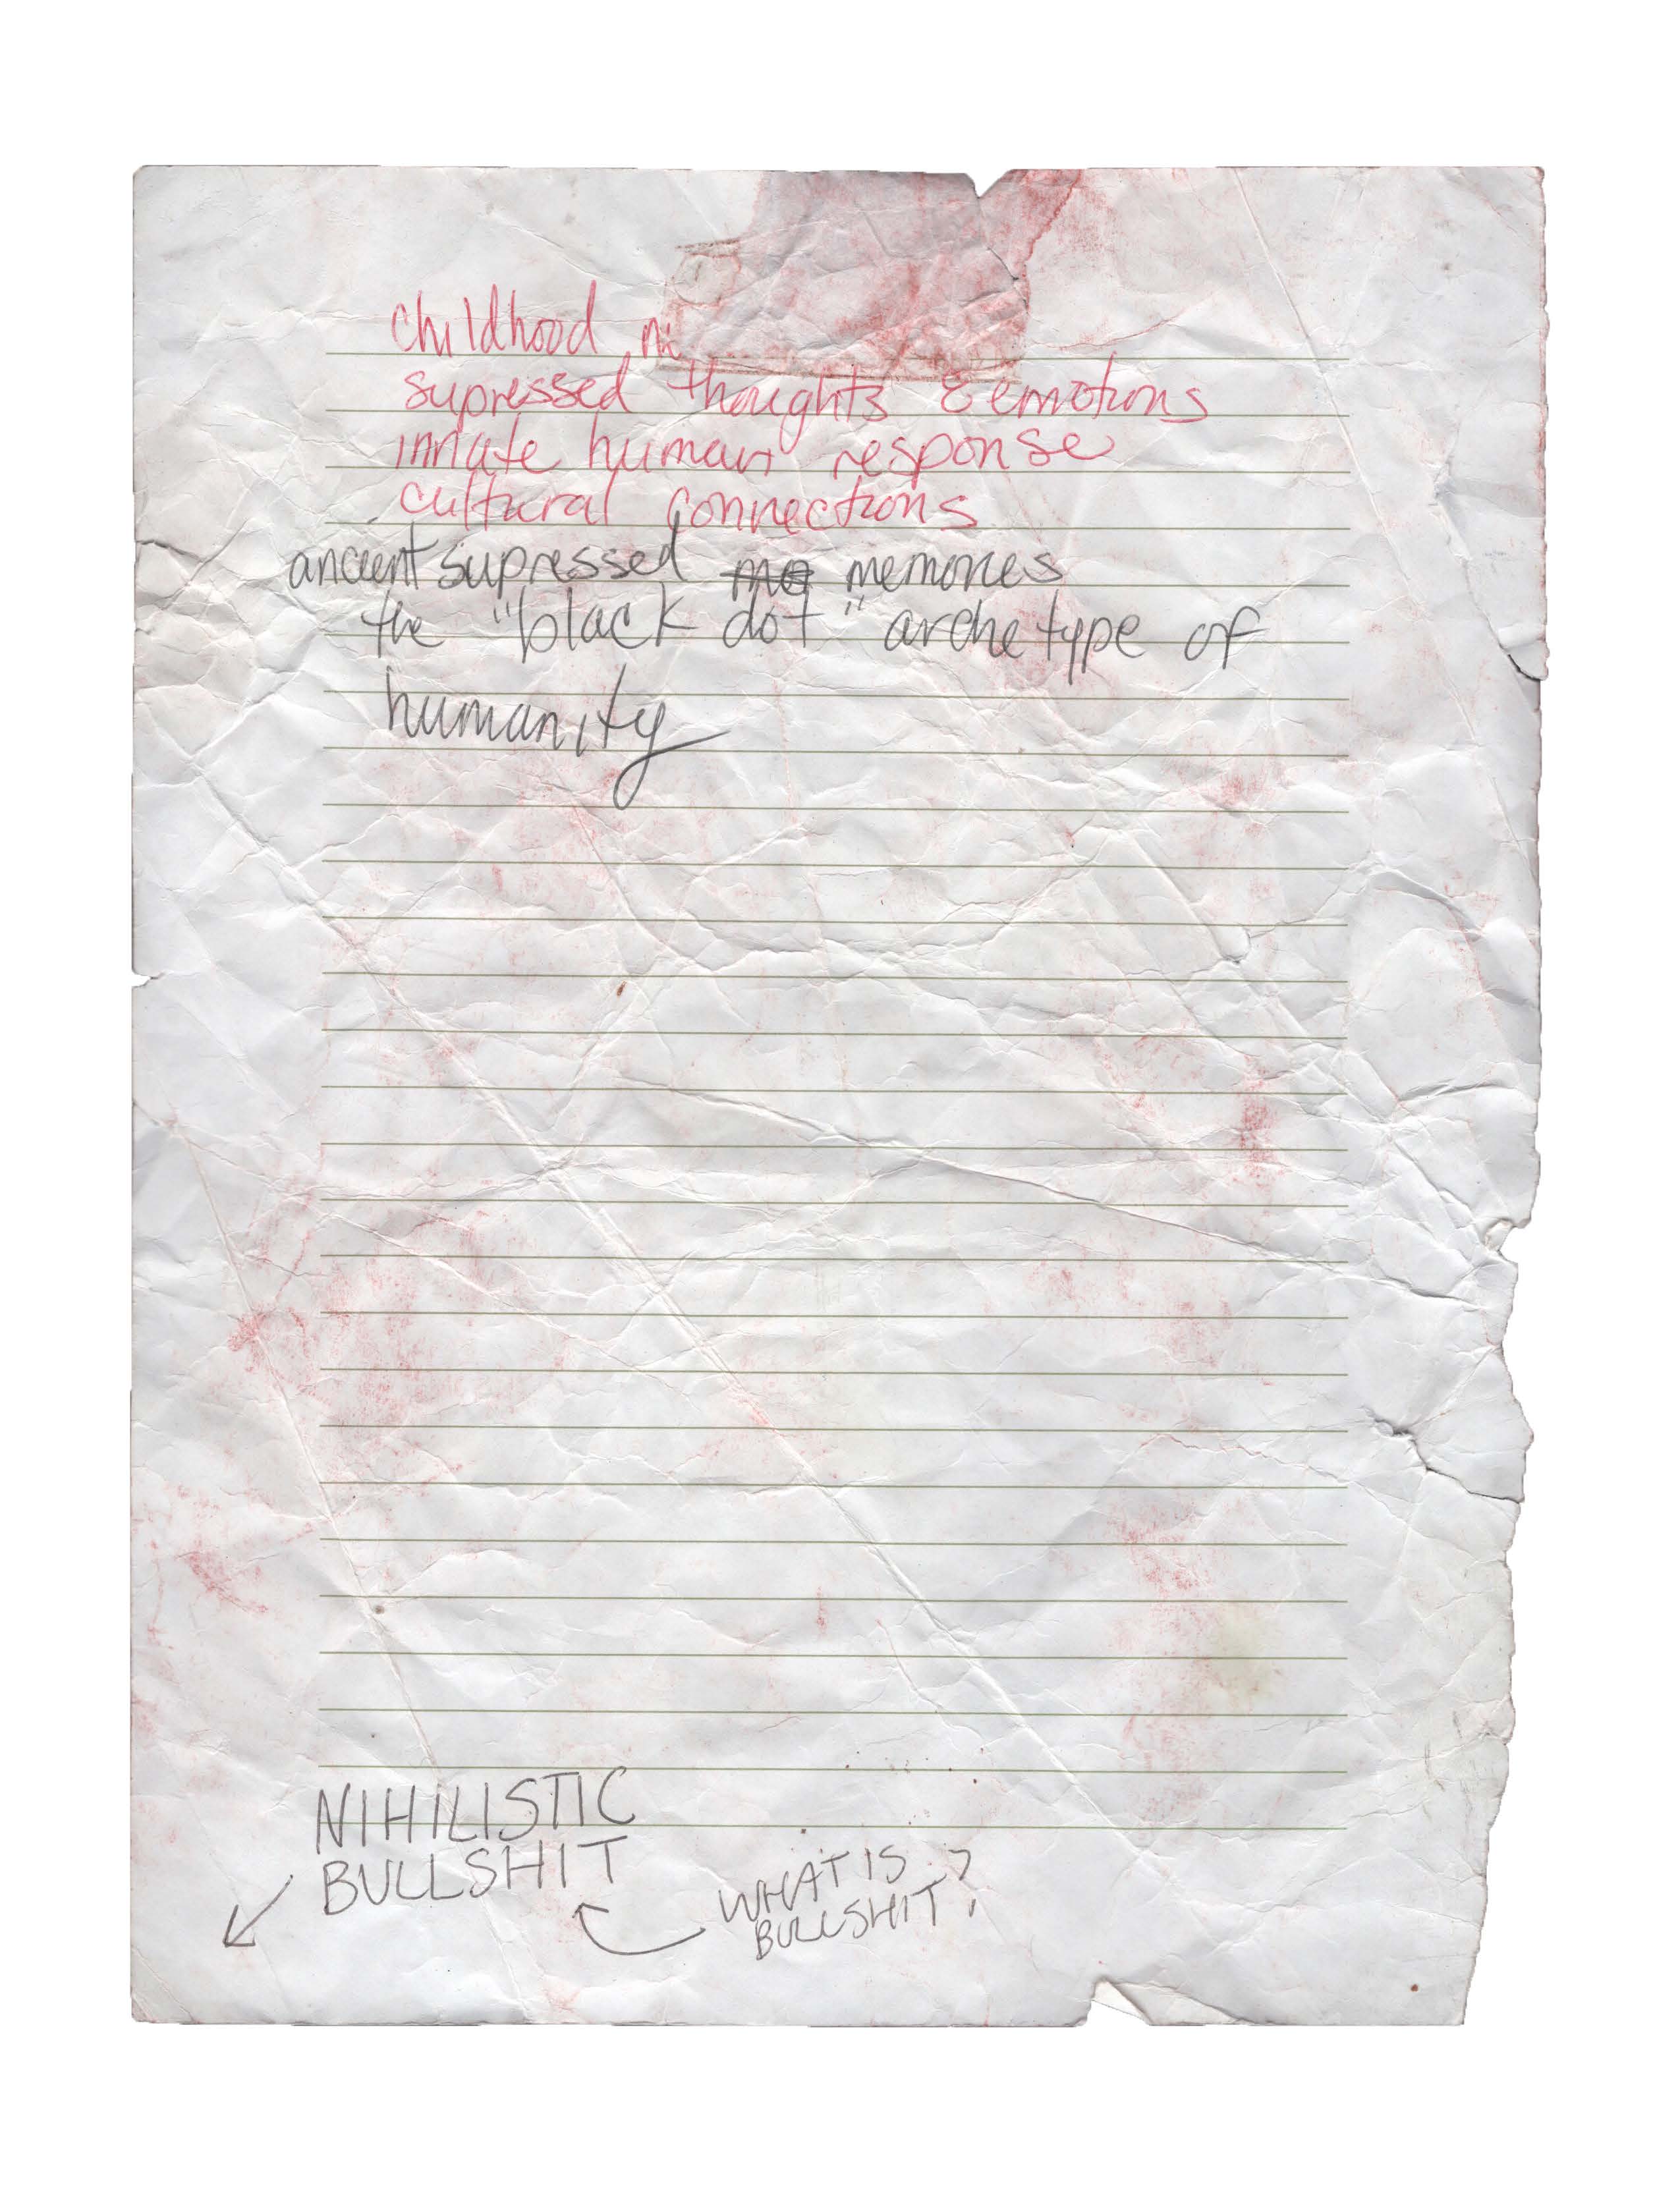 childhood
supressed thoughts & emotions
innate human response
cultural connections
ancient supressed memories
the "black dot" archetype of
humanity
NIHILISTIC
BULLSHIT
WHAT IS
BULLSHIT?